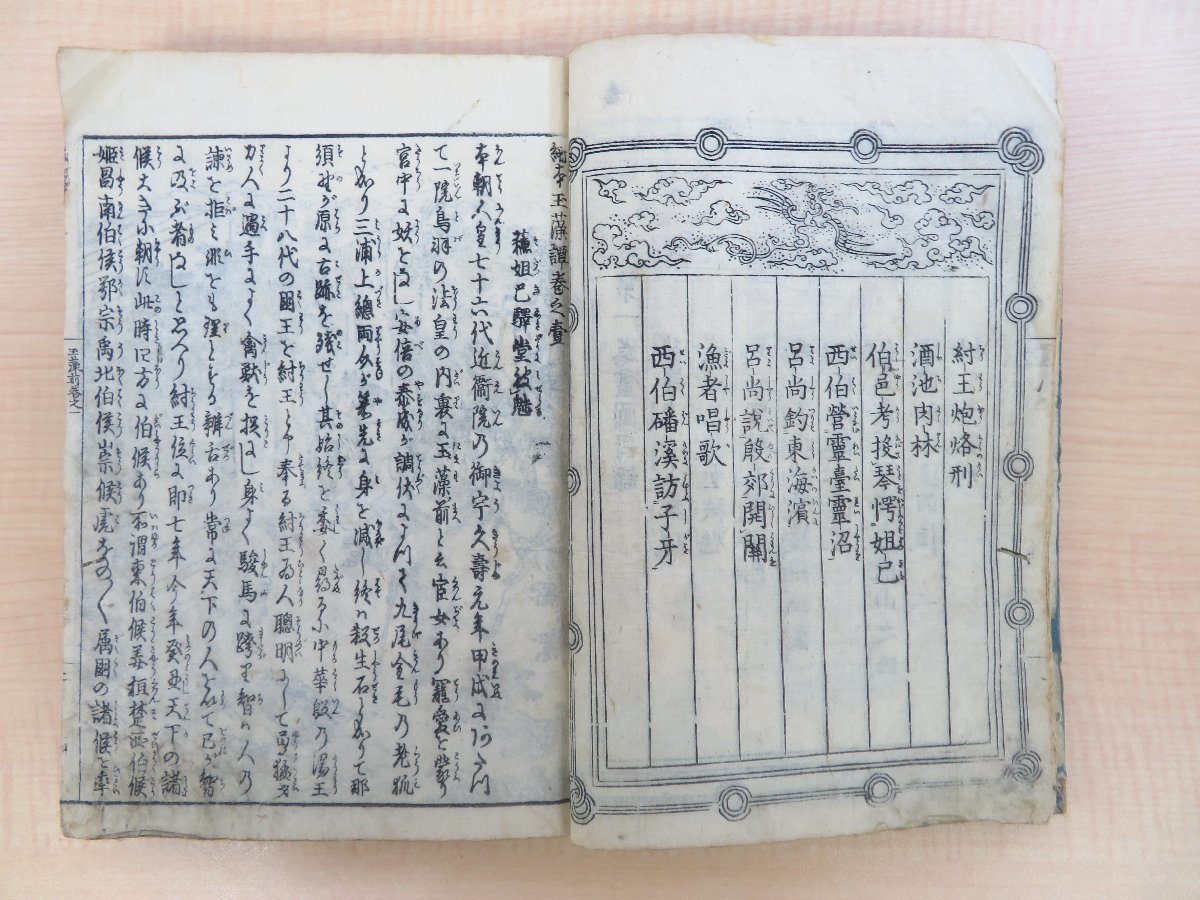 紂王炮烙刑
酒池肉林
伯邑考授琴愕妲己
西伯營靈臺靈沼
呂尚釣東海濱
呂尚說殷郊開關
漁者唱歌
西伯磻溪訪子牙
繪本玉藻譚巻之壹
蘓妲己驛堂被魅
本朝人皇七十六代近衞院乃御宇久壽元年甲戌に
て一院鳥羽の法皇の内裏に玉藻前と云宦女あり寵愛を蒙り
宮中に妖をなし安倍の泰成が調伏によつて九尾金毛乃老狐
となり三浦上總両介が箭先に身を滅し終ハ殺生石となりて那
須野が原に古跡を残せし其始終を委く尋るに中華殷乃湯王
より二十八代の国王を紂王と申奉る紂王為人聰明にして勇猛才
力人に過手にて禽獣を挌なし身よく駿馬に跨り智ハ人の
諫を拒ミ非をも理とする辨舌あり常に天下の人を以て己が智
に及ぶ者なしと思へり紂王位に即七年今年癸丑天下の諸
候大き小朝に此時四方に伯候あり所謂東伯候姜桓楚西伯候
姫昌南伯侯鄂宗禹北伯侯崇候虎をの〱属国の諸候を率